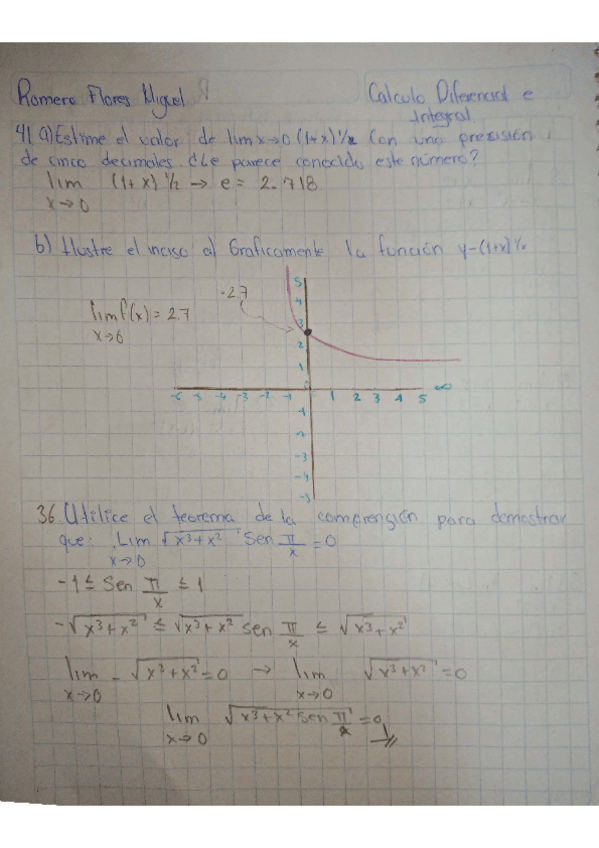 Romero Flores Miguel
Calculo Diferencial e
Integral
41 a) Estime el valor de lim x→0 (1+x)^1/x Con una presisión
de cinco decimales. ¿Le parece conocido este número?
lim (1+x)^1/2 → e = 2.718
x→0
b) Ilustre el inciso a) Graficamente la función y-(1+x)^1/x
-2.7
lim f(x) = 2.7
x→0
5
4
3
2
1
-6 -5 -4 -3 -2 -1 0 1 2 3 4 5 ∞
-1
-2
-3
-4
-5
36. Utilice el teorema de la comprensión para demostrar
que: Lim √x³+x² Sen π/x = 0
x→0
-1 ≤ Sen π/x ≤ 1
-√x³+x² ≤ √x³+x² sen π/x ≤ √x³+x²
lim -√x³+x² = 0 → lim √x³+x² = 0
x→0 x→0
lim √x³+x² sen π/x = 0
x→0